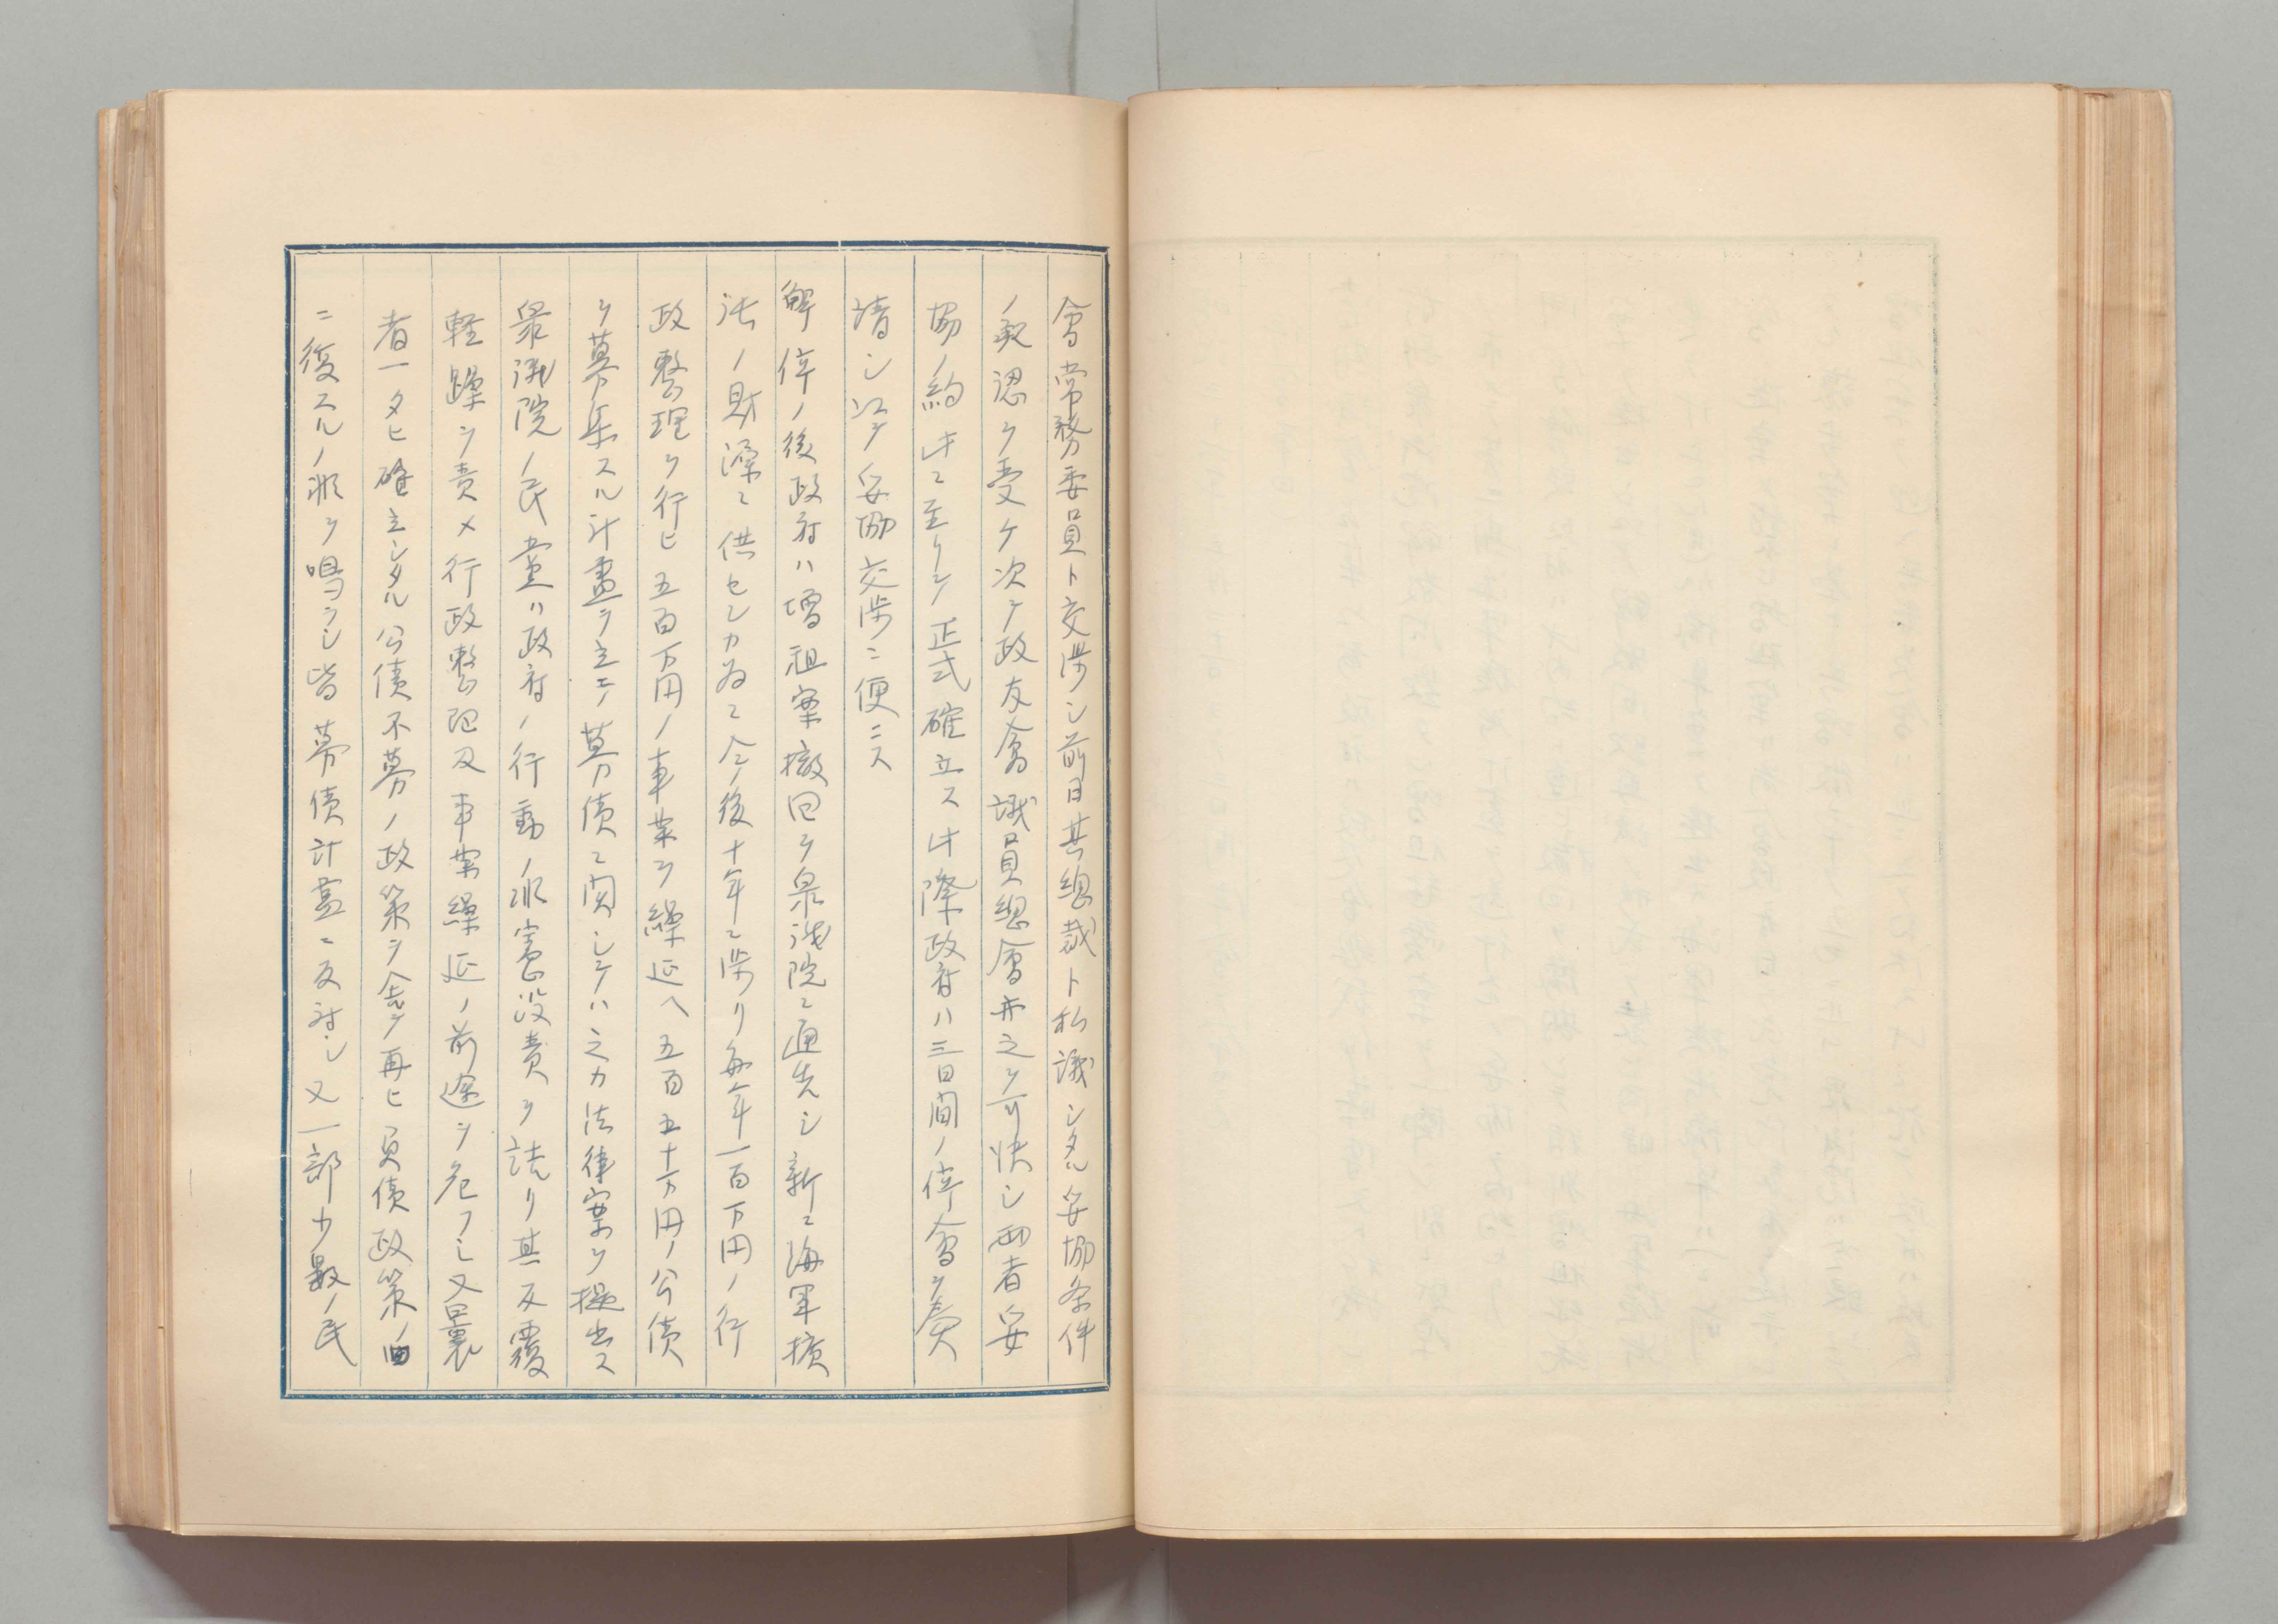 會常務委員ト交渉シ前日其總裁ト私議シタル妥協条件
ノ承認ヲ受ケ次テ政友會議員總會亦之ヲ可決シ両者妥
協ノ約茲ニ至リテ正式確立ス此際政府ハ三日間ノ停會ヲ奏
請シ以テ妥協交渉ニ便ニス
解停ノ後政府ハ増租案撤回ヲ衆議院ニ通告シ新ニ海軍擴
張ノ財源ニ供センカ為ニ今後十年ニ渉リ毎年一百万円ノ行
政整理ヲ行ヒ五百万円ノ事業ヲ繰延ヘ五百五十万円ノ公債
ヲ募集スル計畫ヲ立テ募債ニ関シテハ之カ法律案ヲ提出ス
衆議院ノ民党ハ政府ノ行動ノ非憲没責ヲ詰リ其反覆
軽躁ヲ責メ行政整理及事業繰延ノ前途ヲ危フシ又曩
者一タヒ確立シタル公債不募ノ政策ヲ舍テ再ヒ負債政策ノ舊
ニ復スルノ非ヲ鳴ラシ皆募債計畫ニ反対シ又一部少數ノ民